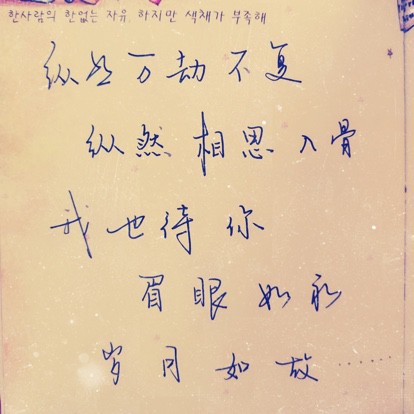 한사람의 한없는 자유 하지만 색채가 부족해
纵是万劫不复
纵然相思入骨
我也待你
眉眼如初
岁月如故……